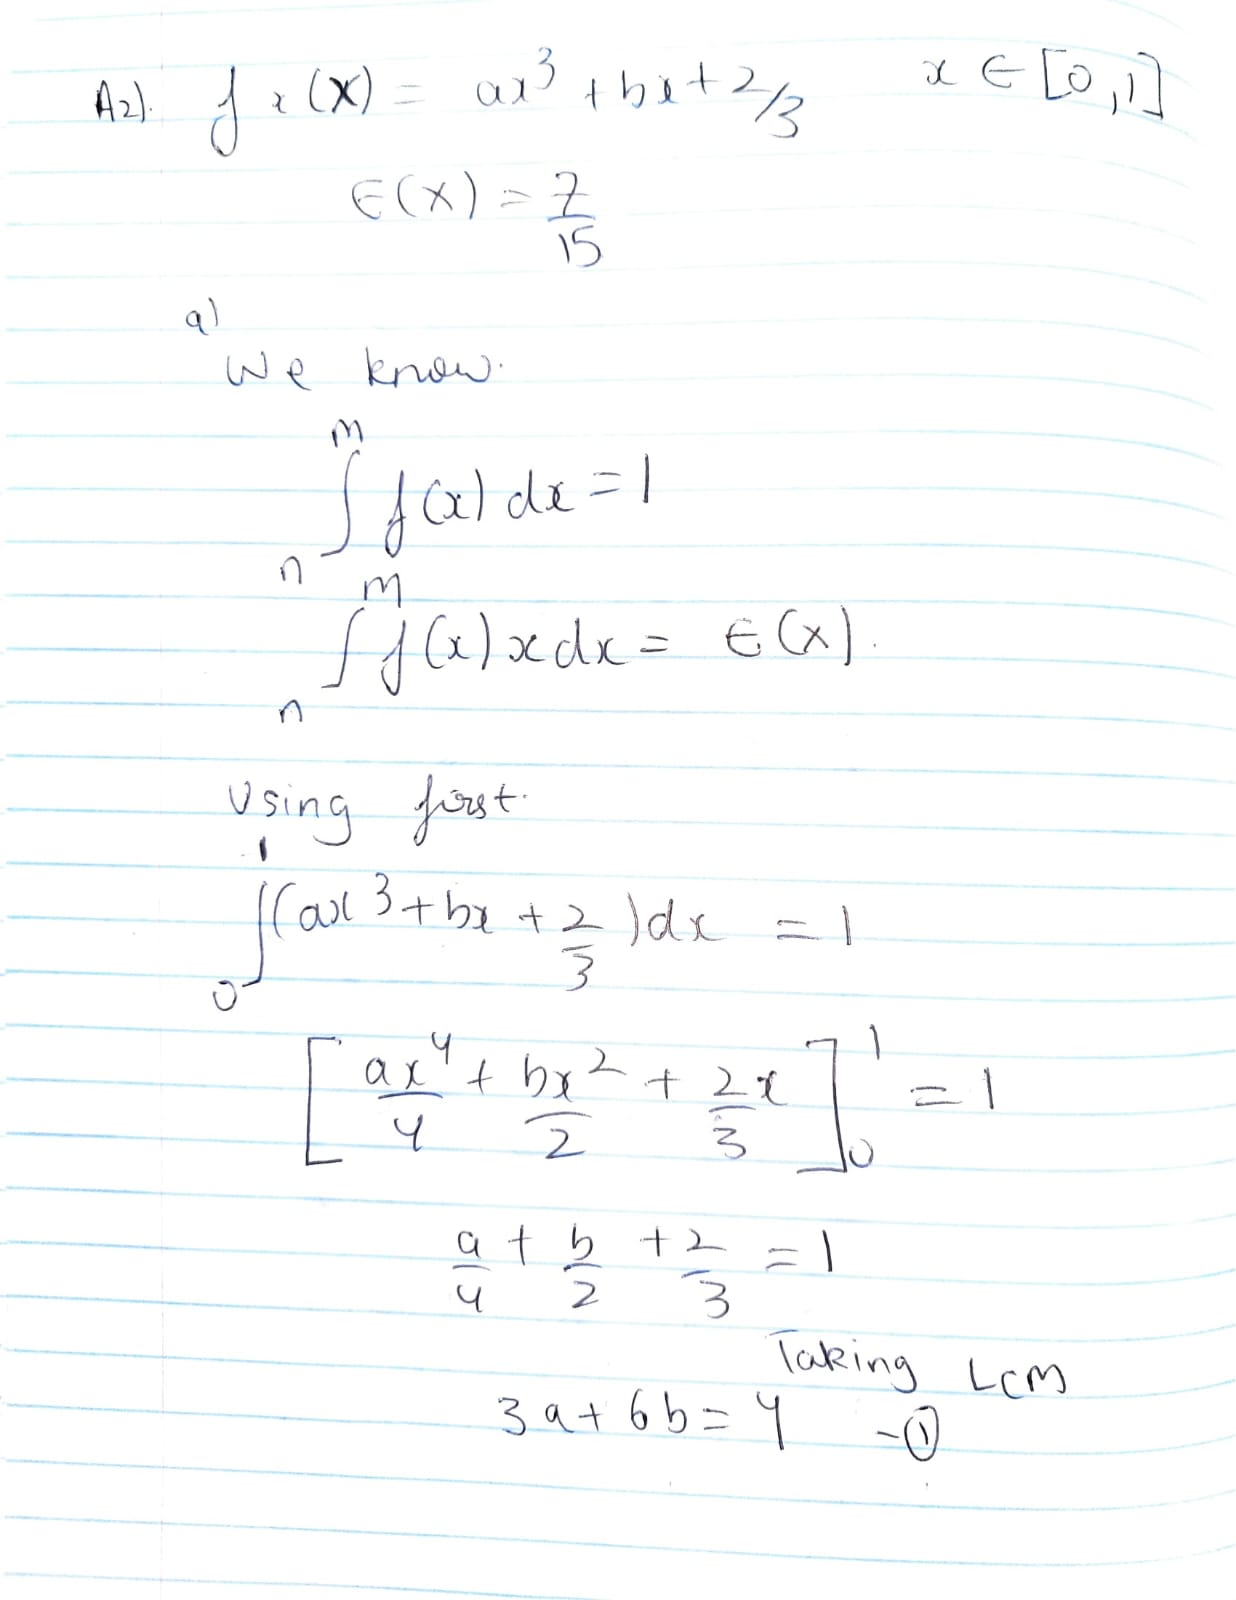 A2). f x (X) = ax³ + bx + 2/3 x ∈ [0,1]
E(X) = 7/15
a)
We know.
∫ₙᵐ f(x) dx = 1
∫ₙᵐ f(x) x dx = E(X).
Using first.
∫₀¹ (ax³ + bx + 2/3) dx = 1
[ax⁴/4 + bx²/2 + 2x/3]₀¹ = 1
a/4 + b/2 + 2/3 = 1
Taking LCM
3a + 6b = 4 - ①